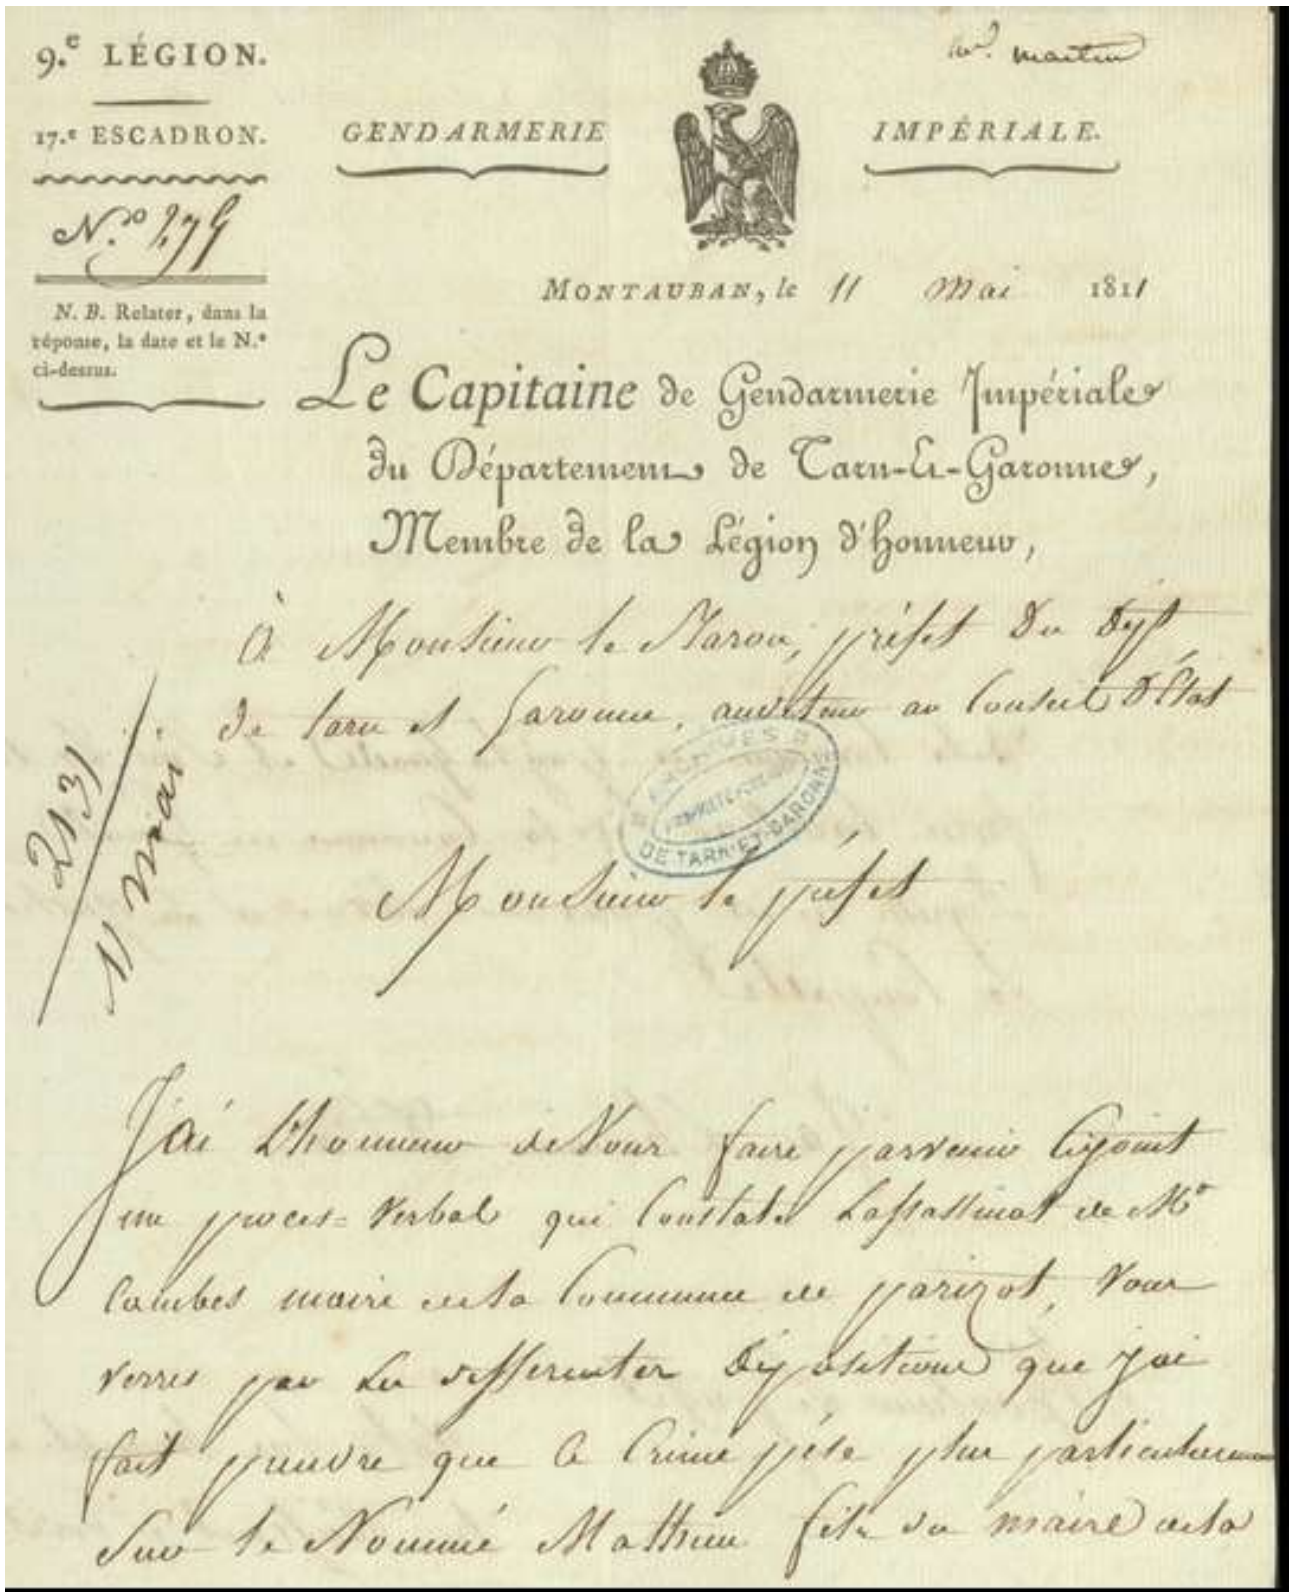 9.e LÉGION.
17.e ESCADRON.
N.o 279
N. B. Relater, dans la
réponse, la date et le N.o
ci-dessus.
martin
GENDARMERIE IMPÉRIALE.
MONTAUBAN, le 11 mai 1811
Le Capitaine de Gendarmerie Impériale
du Département de Tarn-Et-Garonne,
Membre de la Légion d'honneur,
A Monsieur le Baron, préfet du Dépt
de tarn et Garonne, auditeur au Conseil d'État
ARCHIVES
DE TARN-ET-GARONNE
2131
11 Mai
Monsieur le préfet
J'ai L'honneur de Vous faire parvenir Cijoint
un proces-Verbal qui Constate Lassassinat de Mr
Combes maire de la Commune de parizot, Vous
verres par les differentes Dépositions que j'ai
fait prendre que le Crime pése plus particulierement
Sur le Nommé Mathieu fils du maire de la